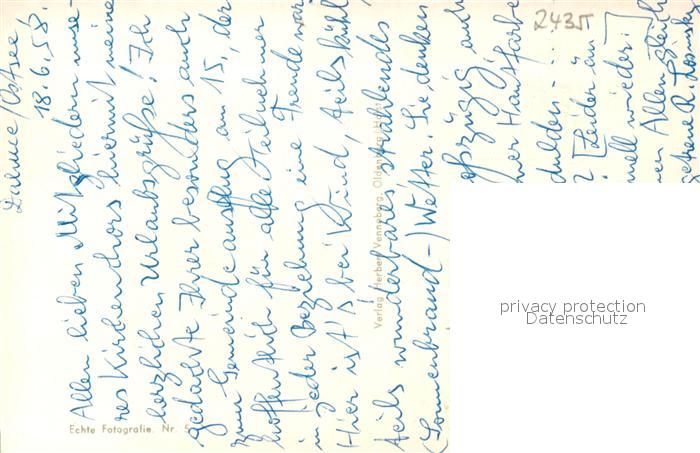 Dahme/Ostsee,
18.6.58.
Allen lieben Mitgliedern unse-
res Kirchenchors hiermit meine
herzlichen Urlaubsgrüße! Ich
gedachte Ihrer besonders auch
zum Gemeindeausflug am 15., der
hoffentlich für alle Teilnehmer
in jeder Beziehung eine Freude war.
Hier ist's bei Wind, teils kühl,
teils wunderbares strahlendes
(Sonnenbrand-)Wetter. Sie denken
oßzügig auch
ner Hautfarbe
dulden - - -
? [Leider
nell wieder!]
nen Allen gleich
getreue R.
2435
Echte Fotografie. Nr. 5
Verlag Herbert Venneberg, Oldenburg
privacy protection
Datenschutz